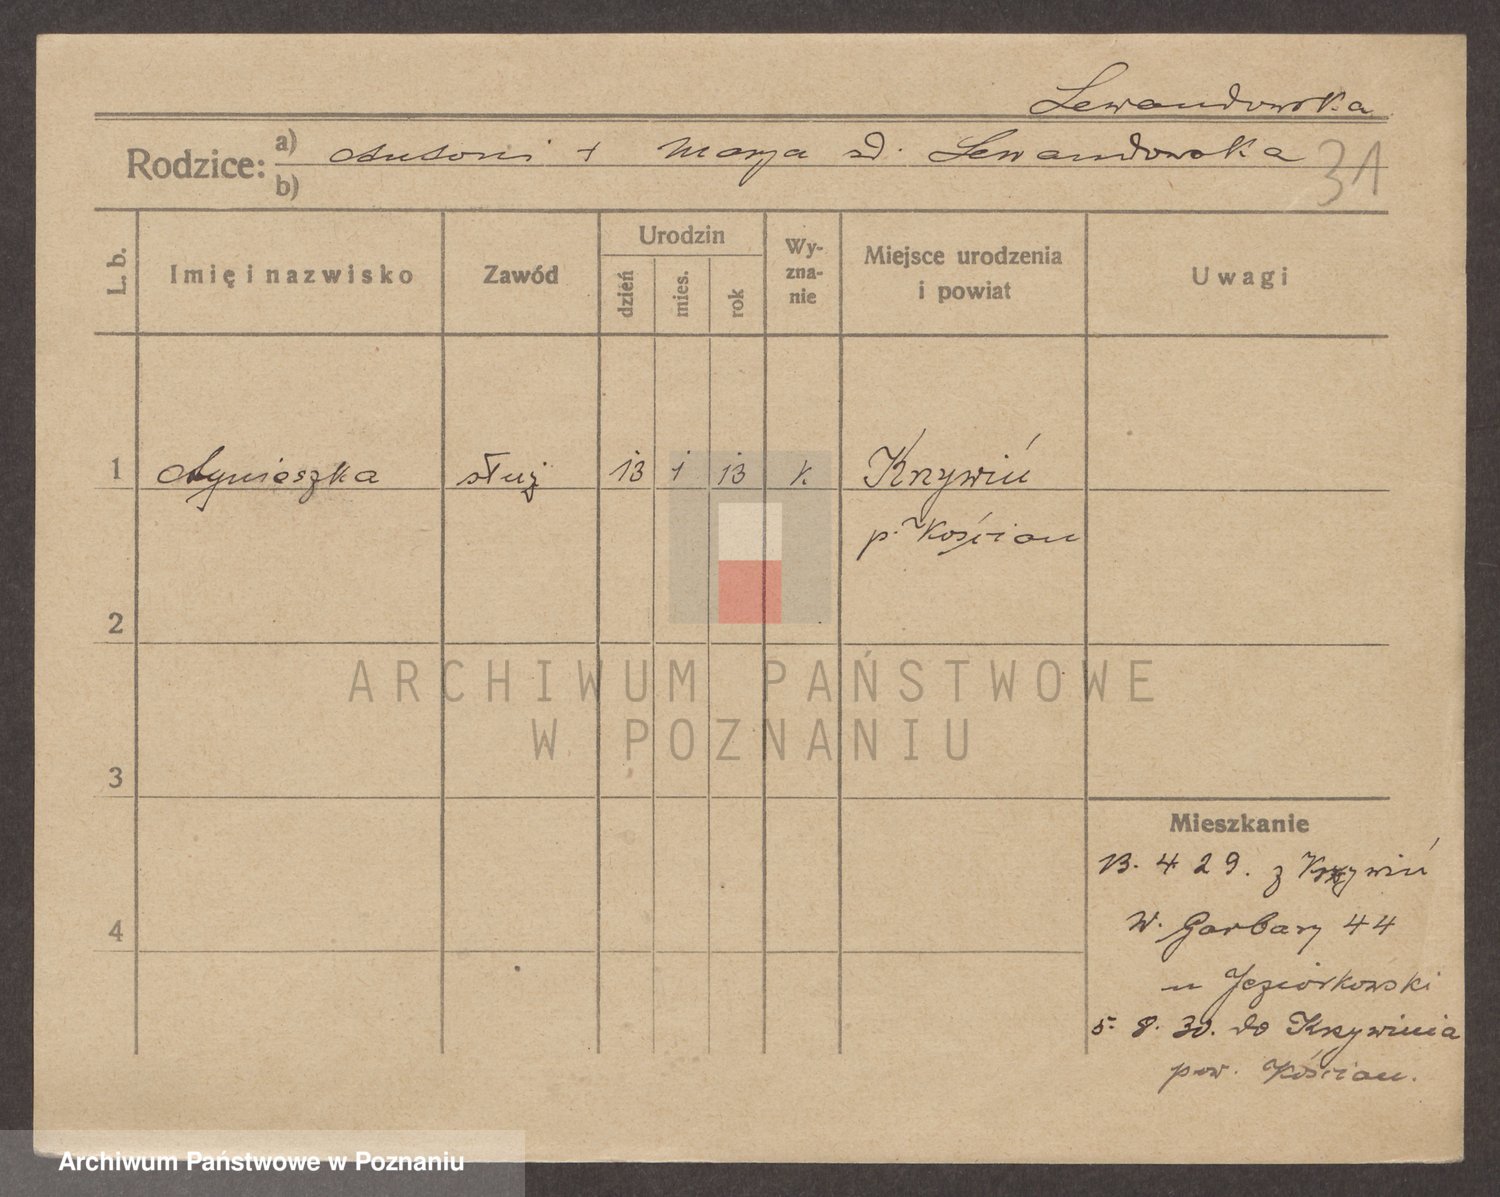 Lewandowska
Rodzice: a) Antoni + Marja zd. Lewandowska
b)
31
L. b.
Imię i nazwisko
Zawód
Urodzin
dzień
mies.
rok
Wy-
zna-
nie
Miejsce urodzenia
i powiat
Uwagi
1 Agnieszka służ 13 1 13 k Krzywiń
p. Kościan
2
3
4
ARCHIWUM PAŃSTWOWE
W POZNANIU
Mieszkanie
13. 4 29. z Krzywiń
W. Garbary 44
u Jeziorkowski
5. 8. 30. do Krzywinia
pow. Kościan.
Archiwum Państwowe w Poznaniu